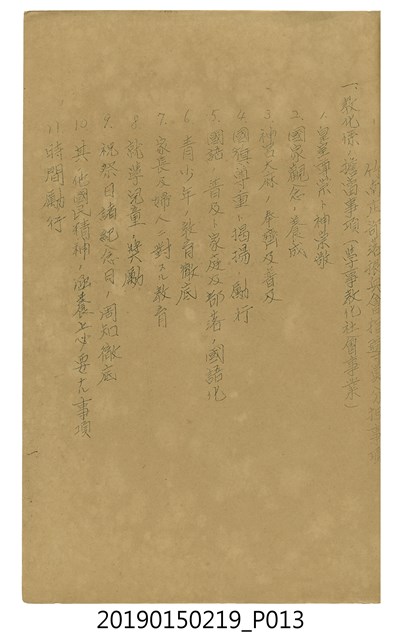 一、教化係ノ擔當事項(專ラ教化社會事業)
1. 皇室尊崇ト神宮崇敬
2. 國家觀念ノ養成
3. 神宮大麻ノ奉齋及普及
4. 國旗尊重ト揭揚ノ勵行
5. 國語ノ普及ト家庭及部落ノ國語化
6. 青少年ノ教育徹底
7. 家長及婦人ニ對スル教育
8. 就學兒童ノ獎勵
9. 祝祭日諸紀念日ノ周知徹底
10. 其ノ他國民精神ノ涵養上必要ナ事項
11. 時間勵行
一
20190150219_P013